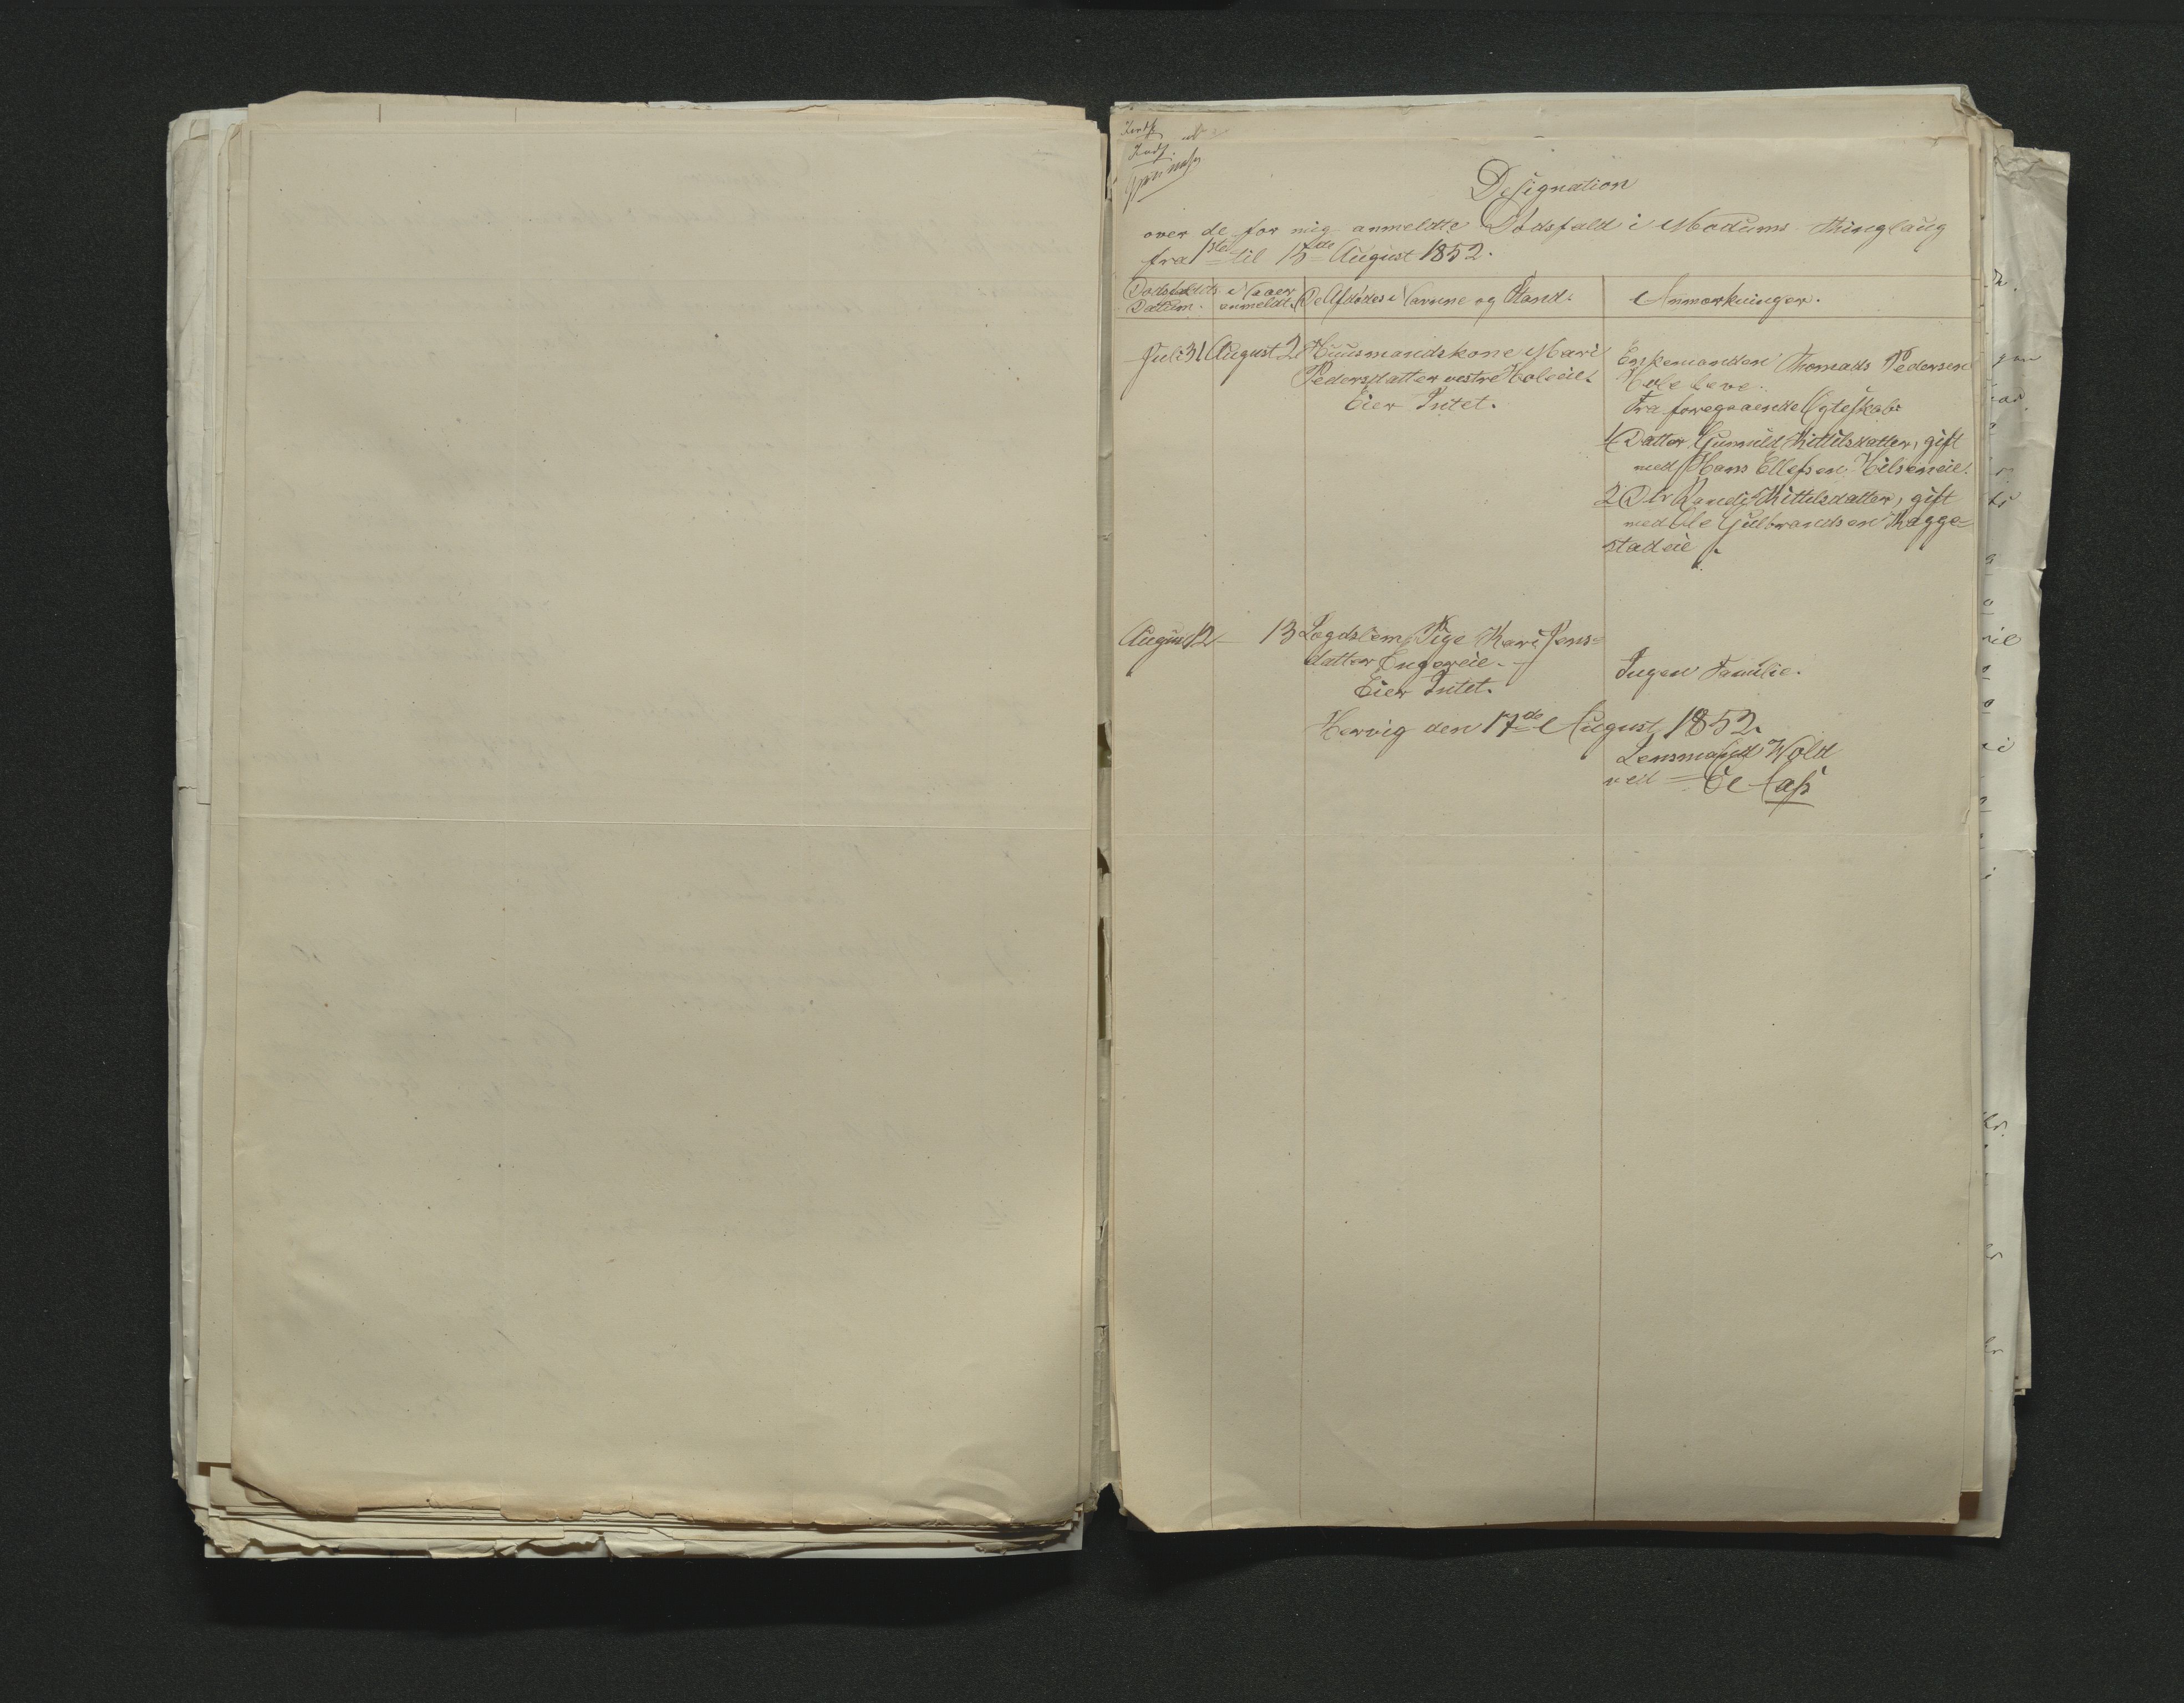 Designation
over de for mig anmeldte Dødsfald i Modums thinglaug
fra 1ste til 15de August 1852.
Dødsfaldets Datum. Naar anmeldt. De Afdødes Navne og Stand. Anmærkninger.
Juli 31 August 2 Huusmandskone Mari
Pedersdatter vestre Holeeie.
Eier Intet.
Enkemanden Thomads Pedersen
Hole
Fra foregaaende Ægteskab
1 Datter Gunnild Kittilsdatter, gift
med Hans Ellefsen Hilseneie.
2 Dtr Randi Kittilsdatter, gift
med Ole Gulbrandsen Kagge-
stadeie.
August 12 — 13 Lægdslem Pige Kari Jens-
datter Engereie.
Eier Intet.
Ingen Familie.
Hervig den 17de August 1852.
Lensmand Wold
ved